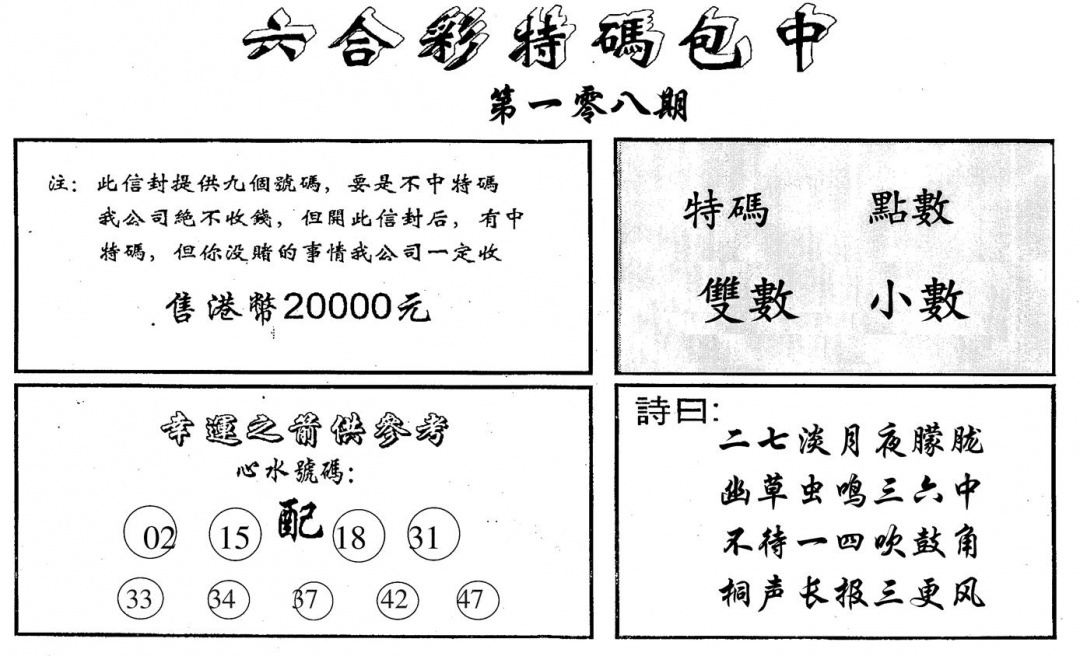 六合彩特碼包中
第一零八期
注：此信封提供九個號碼，要是不中特碼
我公司絕不收錢，但開此信封后，有中
特碼，但你没賭的事情我公司一定收
售港幣20000元
特碼 點數
雙數 小數
幸運之箭供參考
心水號碼：
配
02 15 18 31
33 34 37 42 47
詩曰：
二七淡月夜朦胧
幽草虫鸣三六中
不待一四吹鼓角
桐声长报三更风